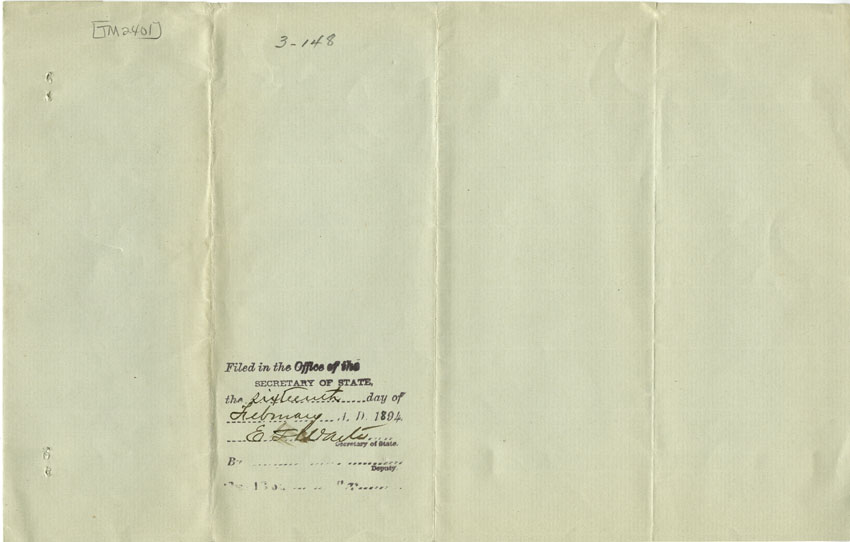 [TM2401]
3-148
Filed in the Office of the
SECRETARY OF STATE,
the sixteenth day of
February A. D. 1894.
E. G. Waite
Secretary of State.
By
Deputy.